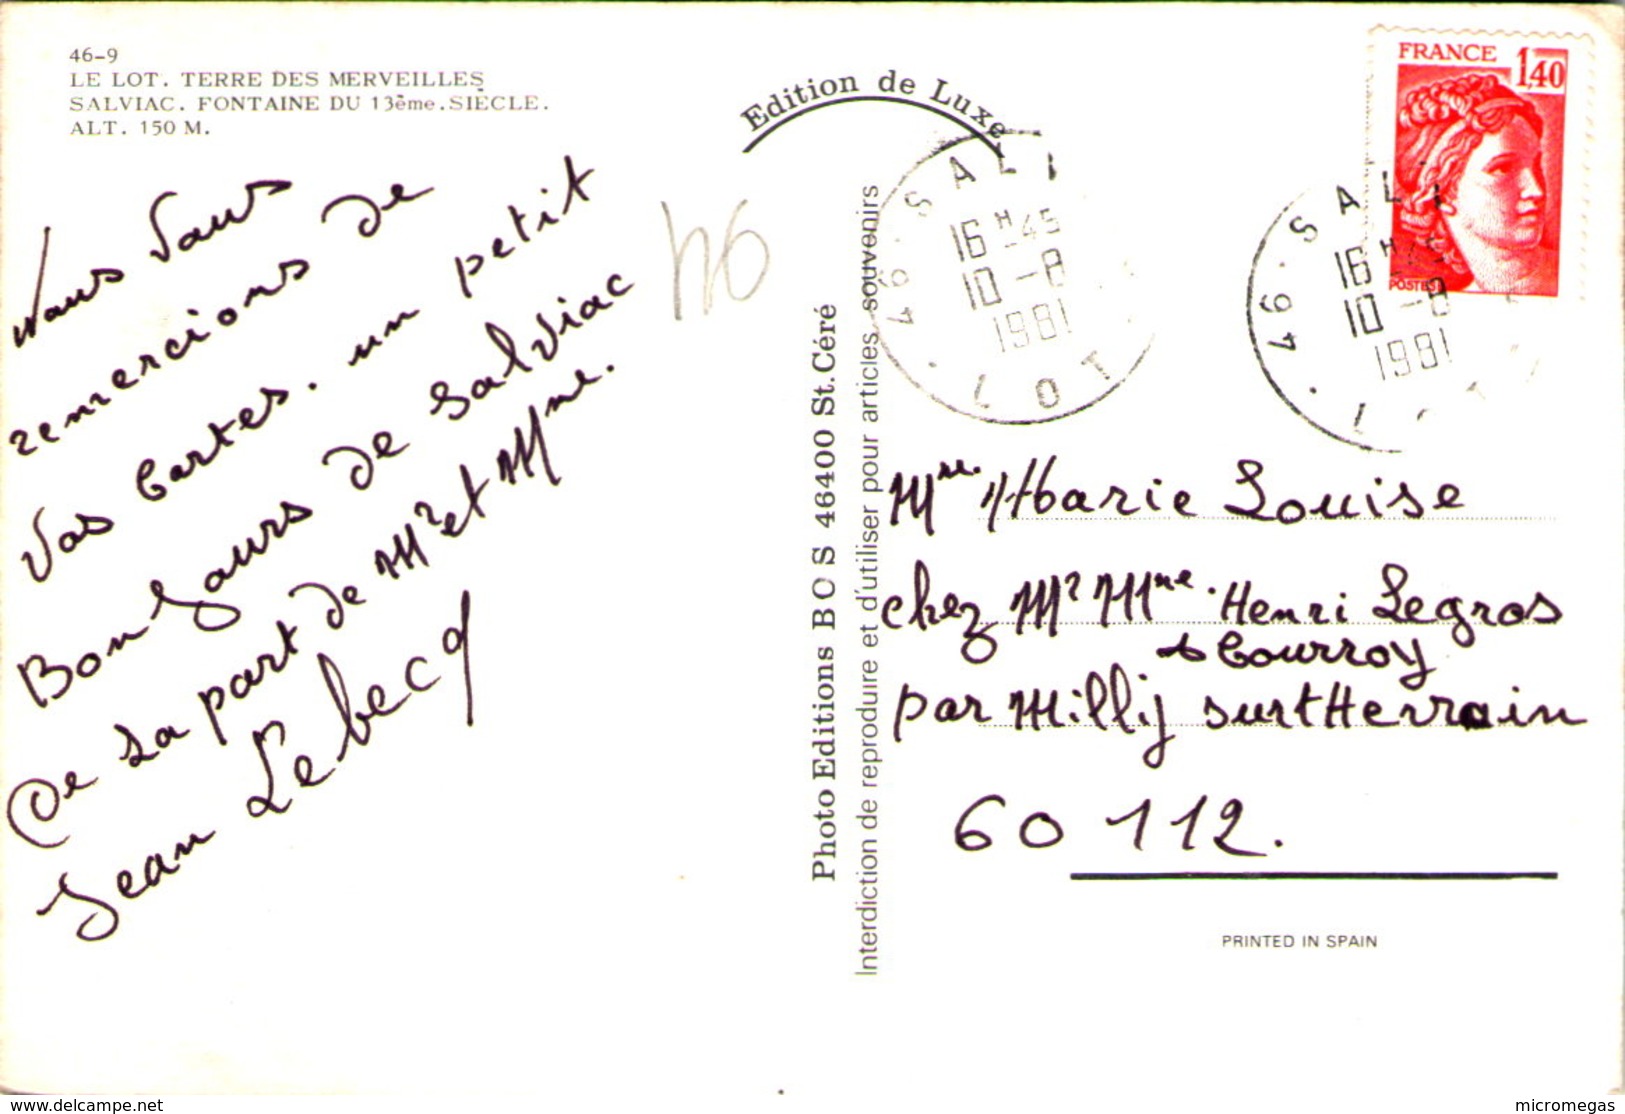 46-9
LE LOT. TERRE DES MERVEILLES
SALVIAC. FONTAINE DU 13ème. SIÈCLE.
ALT. 150 M.
Nous Vous
remercions de
Vos Cartes. un petit
Bonjours de Salviac
de la part de Mr et Mme.
Jean Lebecq
46
Edition de Luxe
Photo Editions BOS 46400 St. Céré
Interdiction de reproduire et d'utiliser pour articles souvenirs
FRANCE
1,40
POSTES
46. SALVI
16 H 45
10 -8
1981
LOT
46. SALVI
16 H 45
10 -8
1981
LOT
Mme Marie Louise
chez Mr Mme. Henri Legros
Courroy
par Milly surtherrain
60 112.
PRINTED IN SPAIN
www.delcampe.net
micromegas